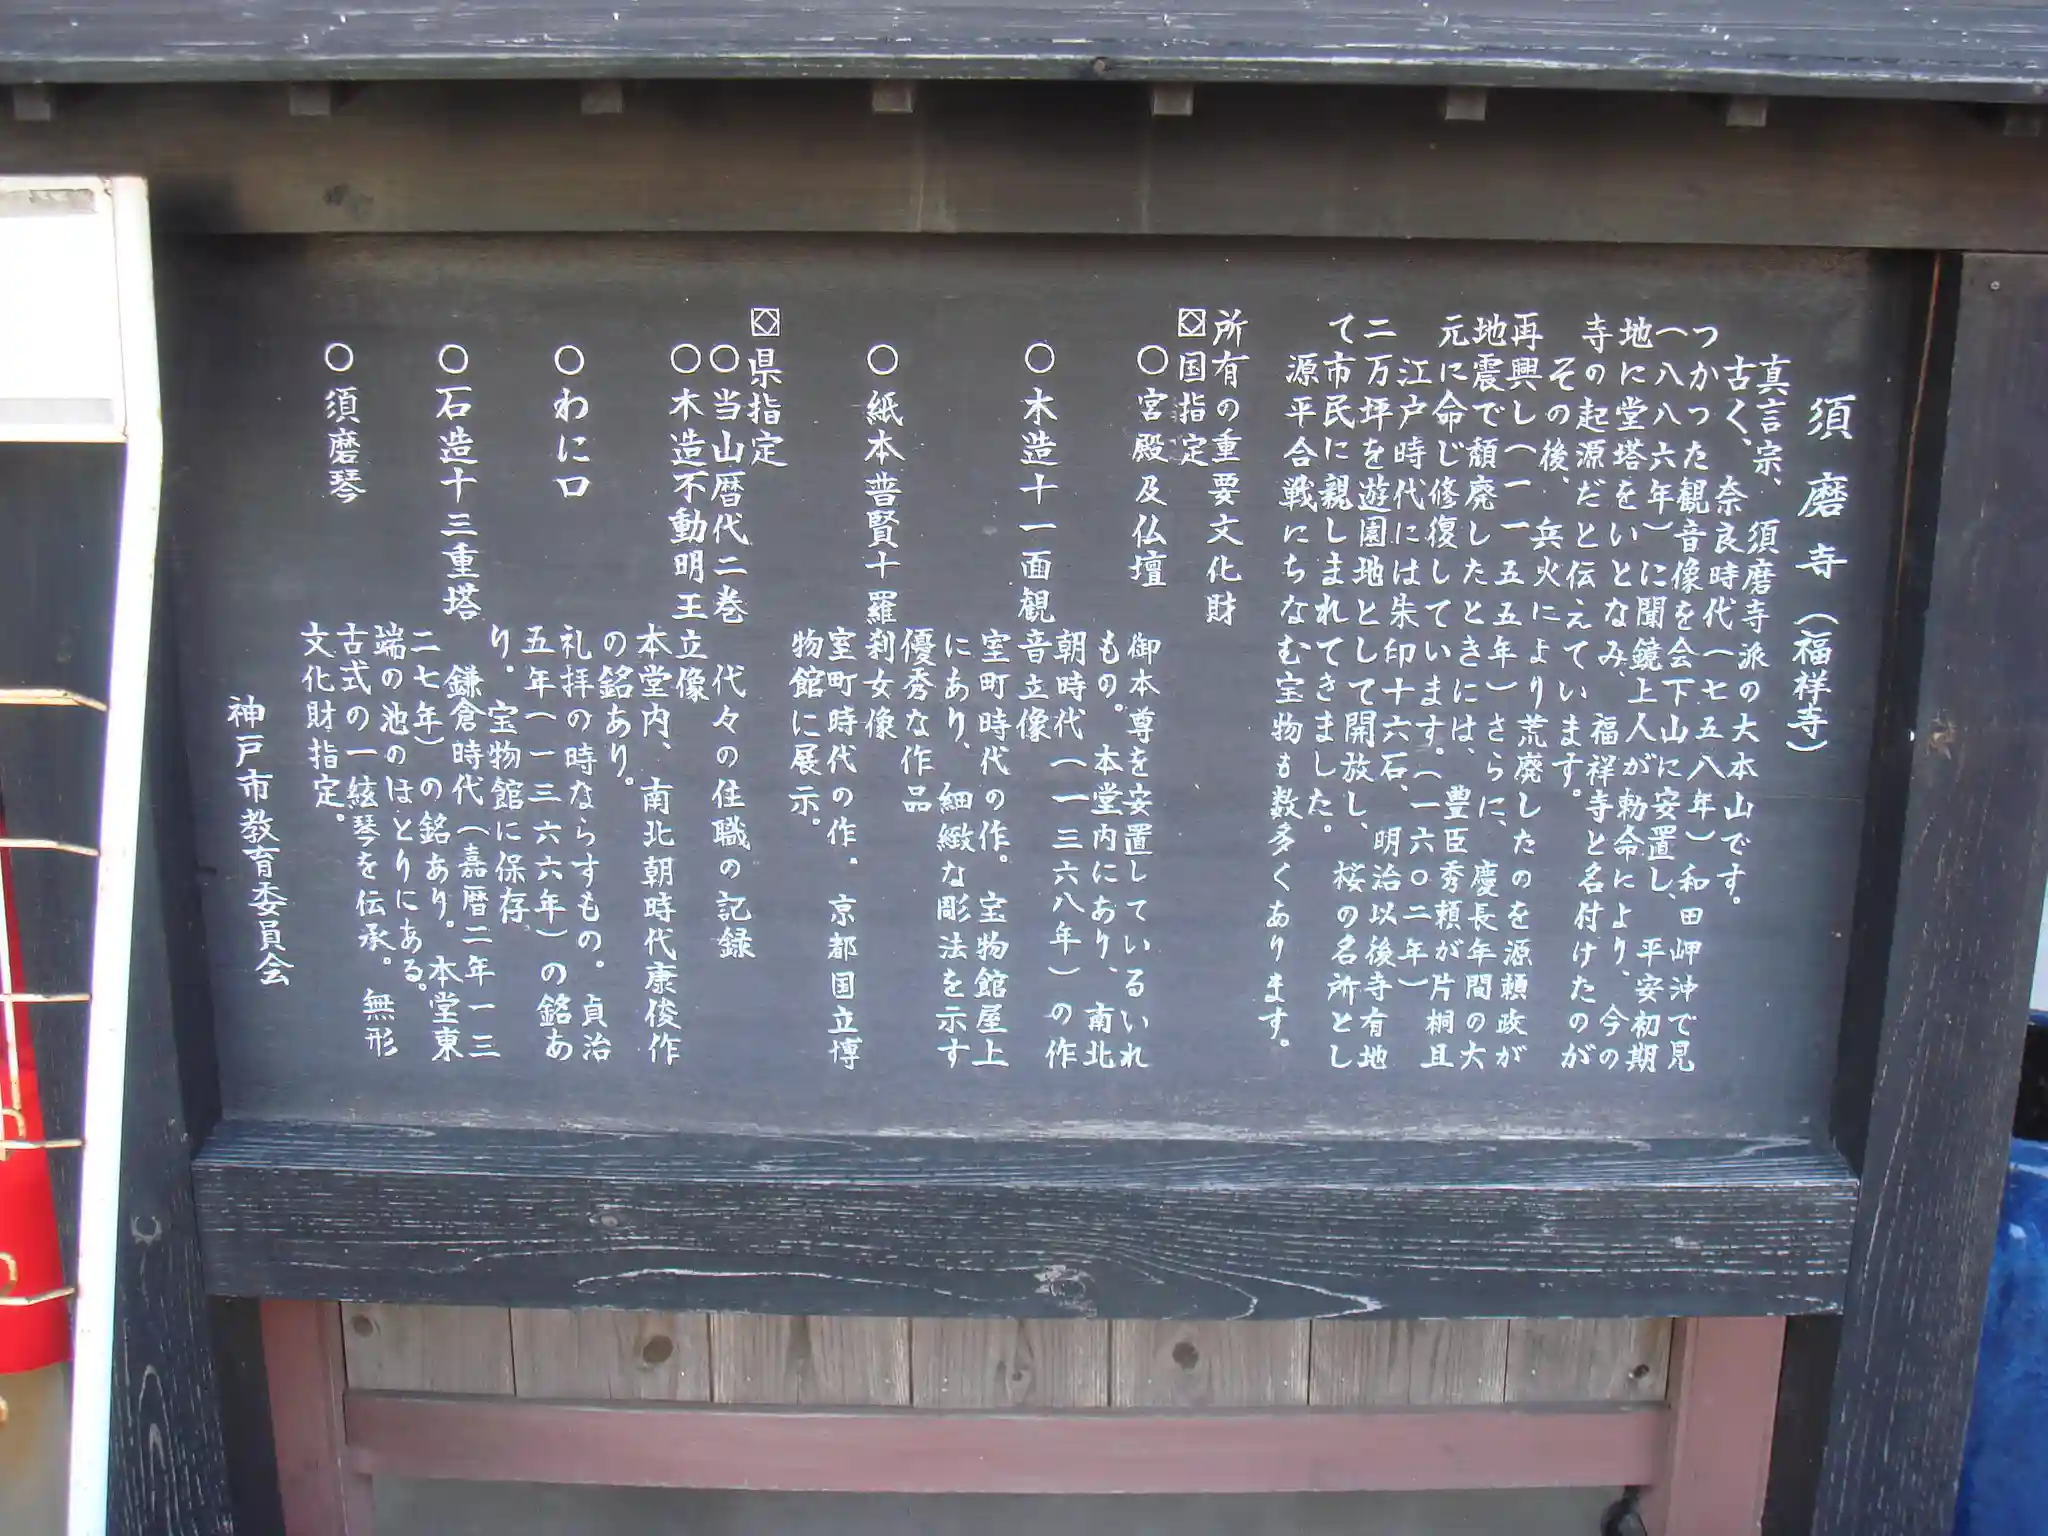 須磨寺（福祥寺）
真言宗、須磨寺派の大本山です。
古く、奈良時代（七五八年）和田岬沖で見
つかつた観音像を会下山に安置し、平安初期
（八八六年）に聞鏡上人が勅命により、今の
地に堂塔をいとなみ、福祥寺と名付けたのが
寺の起源だと伝えています。
その後、兵火により荒廃したのを源頼政が
再興し（一一五五年）さらに、慶長年間の大
地震で頽廃したときには、豊臣秀頼が片桐且
元に命じ修復しています。（一六〇二年）
江戸時代には朱印十六石、明治以後寺有地
二万坪を遊園地として開放し、桜の名所とし
て市民に親しまれてきました。
源平合戦にちなむ宝物も数多くあります。
所有の重要文化財
国指定
〇宮殿及仏壇 御本尊を安置しているいれ
もの。本堂内にあり、南北
朝時代（一三六八年）の作
〇木造十一面観音立像
室町時代の作。宝物館屋上
にあり、細緻な彫法を示す
優秀な作品
〇紙本普賢十羅刹女像
室町時代の作。京都国立博
物館に展示。
県指定
〇当山暦代二巻 代々の住職の記録
〇木造不動明王立像
本堂内、南北朝時代康俊作
の銘あり。
〇わに口 礼拝の時ならすもの。貞治
五年（一三六六年）の銘あ
り。宝物館に保存。
〇石造十三重塔 鎌倉時代（嘉暦二年一三
二七年）の銘あり。本堂東
端の池のほとりにある。
〇須磨琴 古式の一絃琴を伝承。無形
文化財指定。
神戸市教育委員会